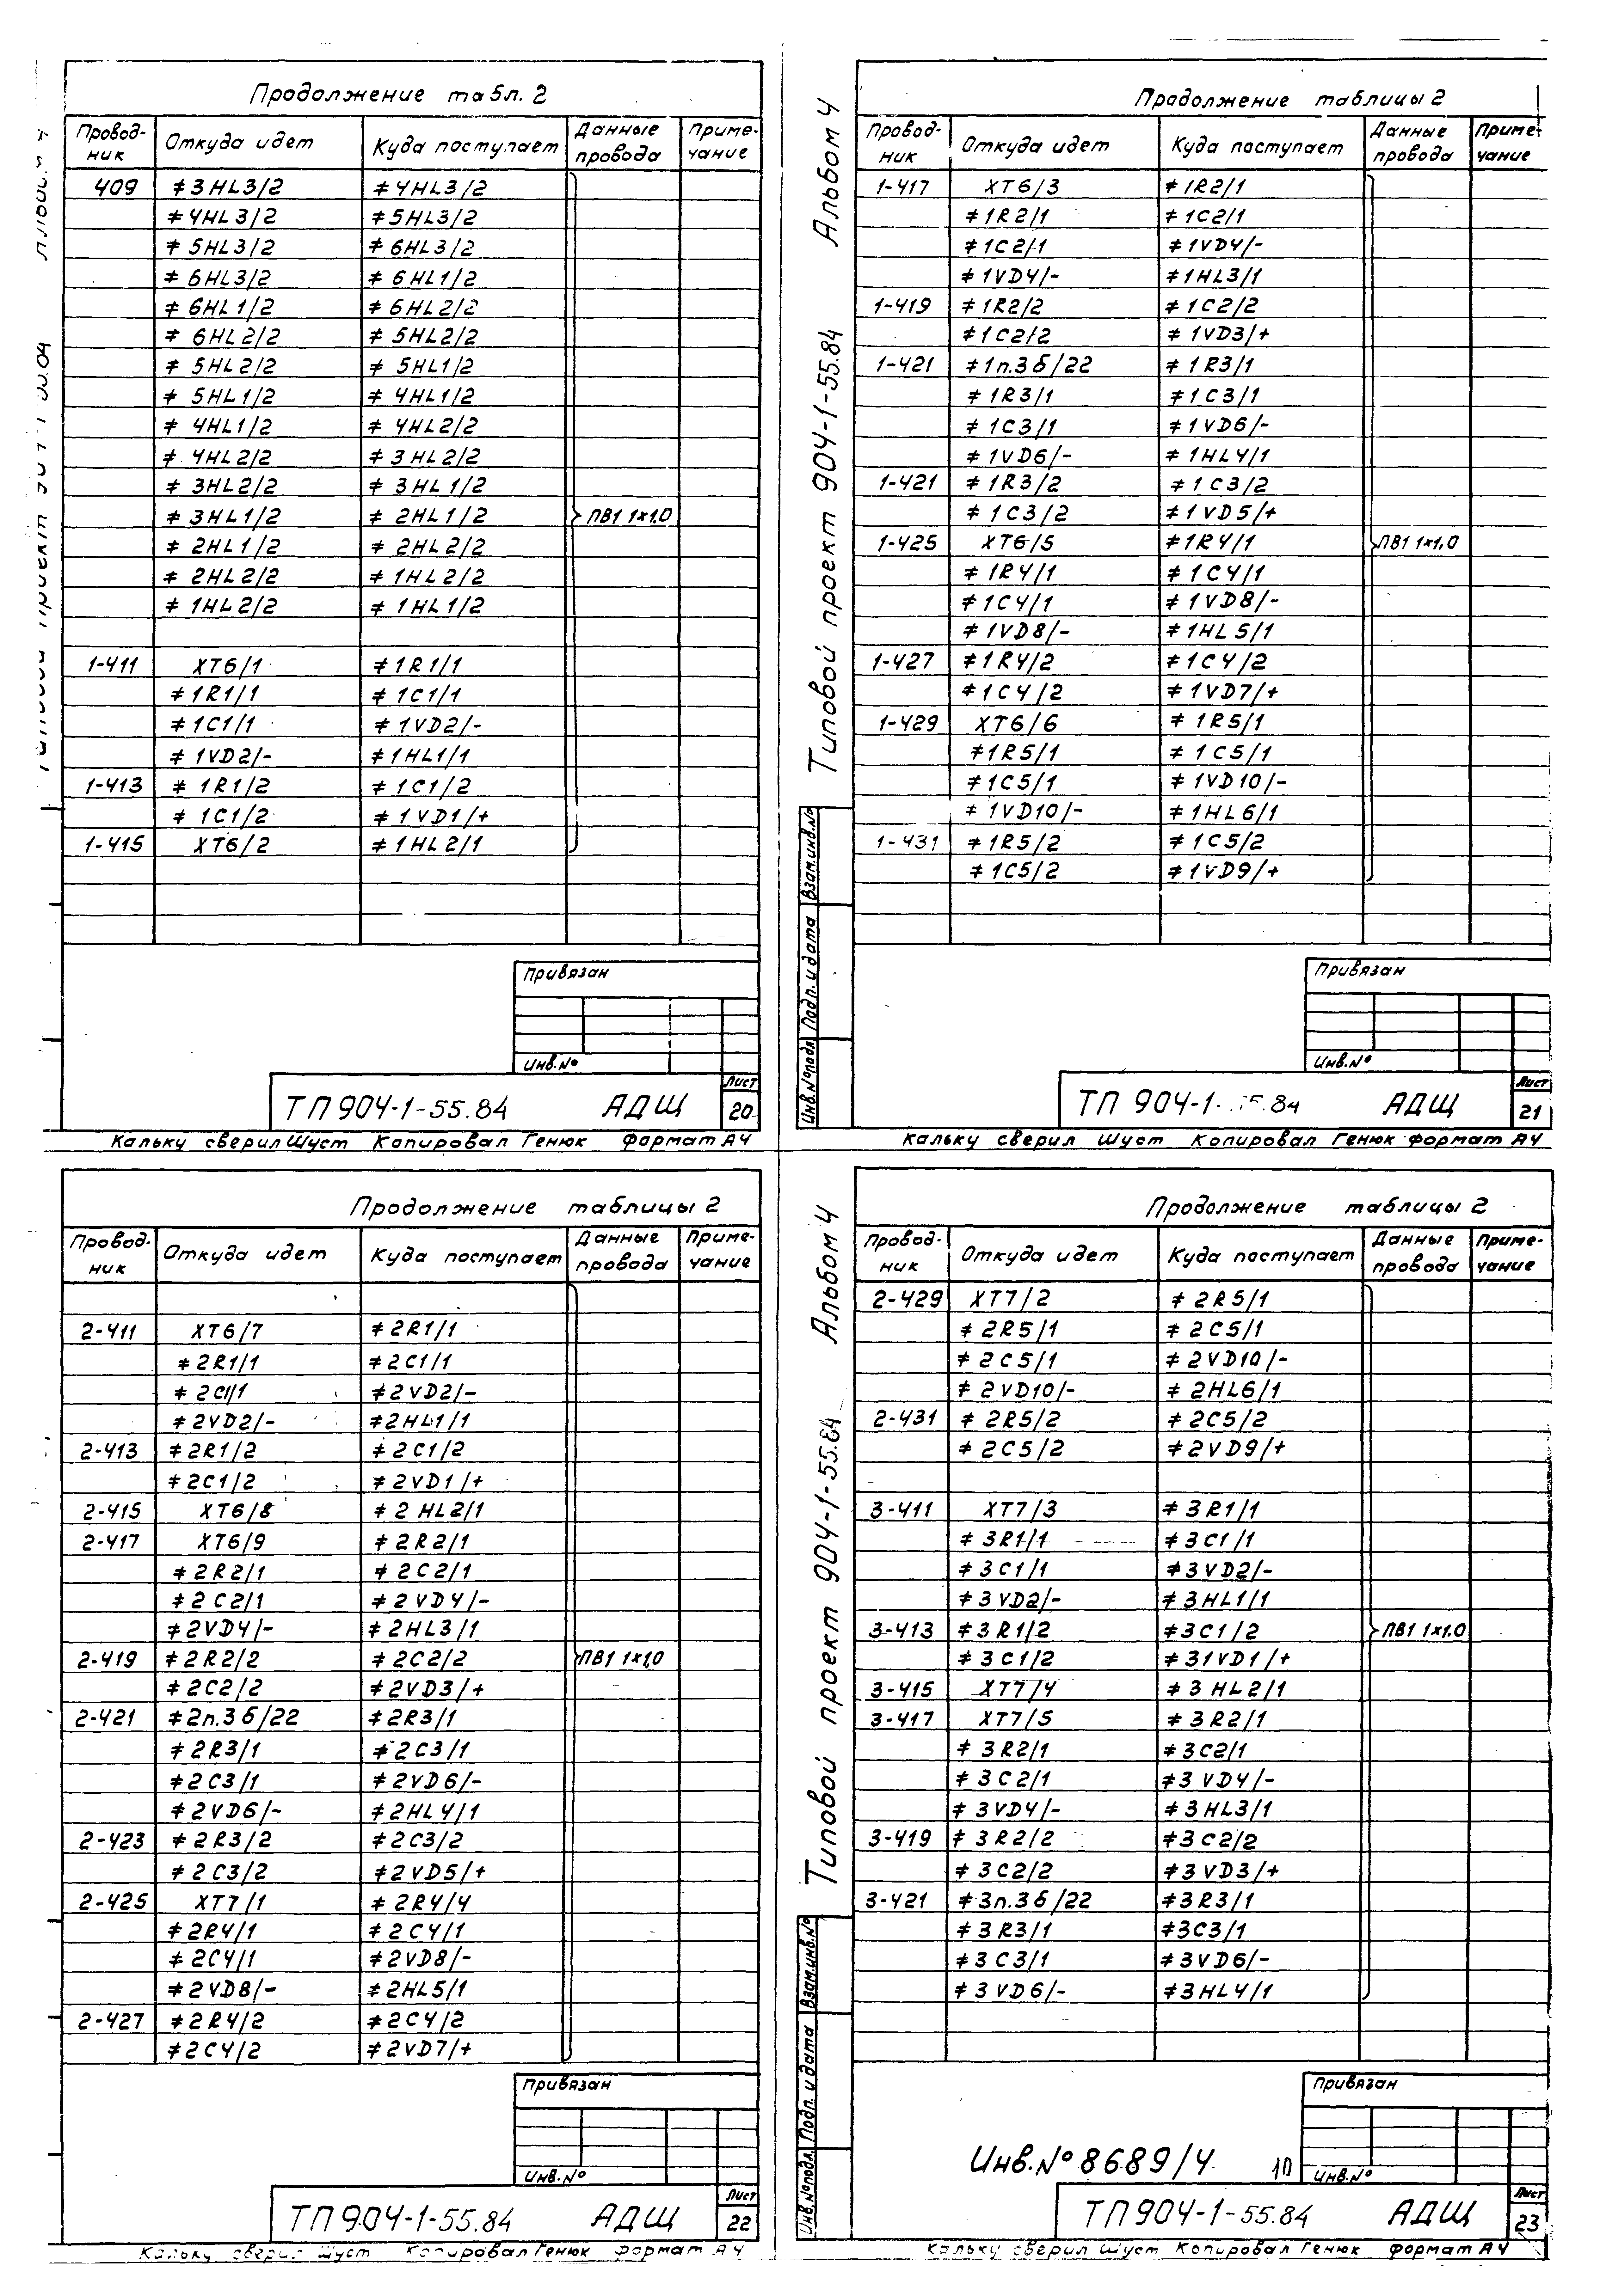 Продолжение табл. 2
Провод-ник Откуда идет Куда поступает Данные провода Приме-чание
409 ≠3HL3/2 ≠4HL3/2
≠4HL3/2 ≠5HL3/2
≠5HL3/2 ≠6HL3/2
≠6HL3/2 ≠6HL1/2
≠6HL1/2 ≠6HL2/2
≠6HL2/2 ≠5HL2/2
≠5HL2/2 ≠5HL1/2
≠5HL1/2 ≠4HL1/2
≠4HL1/2 ≠4HL2/2
≠4HL2/2 ≠3HL2/2
≠3HL2/2 ≠3HL1/2
≠3HL1/2 ≠2HL1/2 ПВ1 1×1,0
≠2HL1/2 ≠2HL2/2
≠2HL2/2 ≠1HL2/2
≠1HL2/2 ≠1HL1/2
1-411 XT6/1 ≠1R1/1
≠1R1/1 ≠1C1/1
≠1C1/1 ≠1VD2/-
≠1VD2/- ≠1HL1/1
1-413 ≠1R1/2 ≠1C1/2
≠1C1/2 ≠1VD1/+
1-415 XT6/2 ≠1HL2/1
Привязан
Инв.№
ТП 904-1-55.84 АДЩ Лист 20
Кальку сверил Шуст Копировал Генюк формат А4
Типовой проект 904-1-55.84 Альбом 4
Продолжение таблицы 2
Провод-ник Откуда идет Куда поступает Данные провода Приме-чание
1-417 XT6/3 ≠1R2/1
≠1R2/1 ≠1C2/1
≠1C2/1 ≠1VD4/-
≠1VD4/- ≠1HL3/1
1-419 ≠1R2/2 ≠1C2/2
≠1C2/2 ≠1VD3/+
1-421 ≠1п.3б/22 ≠1R3/1
≠1R3/1 ≠1C3/1
≠1C3/1 ≠1VD6/-
≠1VD6/- ≠1HL4/1
1-421 ≠1R3/2 ≠1C3/2
≠1C3/2 ≠1VD5/+
1-425 XT6/5 ≠1R4/1 ПВ1 1×1,0
≠1R4/1 ≠1C4/1
≠1C4/1 ≠1VD8/-
≠1VD8/- ≠1HL5/1
1-427 ≠1R4/2 ≠1C4/2
≠1C4/2 ≠1VD7/+
1-429 XT6/6 ≠1R5/1
≠1R5/1 ≠1C5/1
≠1C5/1 ≠1VD10/-
≠1VD10/- ≠1HL6/1
1-431 ≠1R5/2 ≠1C5/2
≠1C5/2 ≠1VD9/+
Инв.№подл. Подп. и дата Взам.инв.№
Привязан
Инв.№
ТП 904-1-55.84 АДЩ Лист 21
Кальку сверил Шуст Копировал Генюк формат А4
Продолжение таблицы 2
Провод-ник Откуда идет Куда поступает Данные провода Приме-чание
2-411 XT6/7 ≠2R1/1
≠2R1/1 ≠2C1/1
≠2C1/1 ≠2VD2/-
≠2VD2/- ≠2HL1/1
2-413 ≠2R1/2 ≠2C1/2
≠2C1/2 ≠2VD1/+
2-415 XT6/8 ≠2HL2/1
2-417 XT6/9 ≠2R2/1
≠2R2/1 ≠2C2/1
≠2C2/1 ≠2VD4/-
≠2VD4/- ≠2HL3/1
2-419 ≠2R2/2 ≠2C2/2 ПВ1 1×1,0
≠2C2/2 ≠2VD3/+
2-421 ≠2п.3б/22 ≠2R3/1
≠2R3/1 ≠2C3/1
≠2C3/1 ≠2VD6/-
≠2VD6/- ≠2HL4/1
2-423 ≠2R3/2 ≠2C3/2
≠2C3/2 ≠2VD5/+
2-425 XT7/1 ≠2R4/4
≠2R4/1 ≠2C4/1
≠2C4/1 ≠2VD8/-
≠2VD8/- ≠2HL5/1
2-427 ≠2R4/2 ≠2C4/2
≠2C4/2 ≠2VD7/+
Привязан
Инв.№
ТП 904-1-55.84 АДЩ Лист 22
Кальку сверил Шуст Копировал Генюк формат А4
Типовой проект 904-1-55.84 Альбом 4
Продолжение таблицы 2
Провод-ник Откуда идет Куда поступает Данные провода Приме-чание
2-429 XT7/2 ≠2R5/1
≠2R5/1 ≠2C5/1
≠2C5/1 ≠2VD10/-
≠2VD10/- ≠2HL6/1
2-431 ≠2R5/2 ≠2C5/2
≠2C5/2 ≠2VD9/+
3-411 XT7/3 ≠3R1/1
≠3R1/1 ≠3C1/1
≠3C1/1 ≠3VD2/-
≠3VD2/- ≠3HL1/1
3-413 ≠3R1/2 ≠3C1/2 ПВ1 1×1,0
≠3C1/2 ≠31VD1/+
3-415 XT7/4 ≠3HL2/1
3-417 XT7/5 ≠3R2/1
≠3R2/1 ≠3C2/1
≠3C2/1 ≠3VD4/-
≠3VD4/- ≠3HL3/1
3-419 ≠3R2/2 ≠3C2/2
≠3C2/2 ≠3VD3/+
3-421 ≠3п.3б/22 ≠3R3/1
≠3R3/1 ≠3C3/1
≠3C3/1 ≠3VD6/-
≠3VD6/- ≠3HL4/1
Инв.№подл. Подп. и дата Взам.инв.№
Привязан
Инв.№
Инв.№ 8689/4 10
ТП 904-1-55.84 АДЩ Лист 23
Кальку сверил Шуст Копировал Генюк формат А4